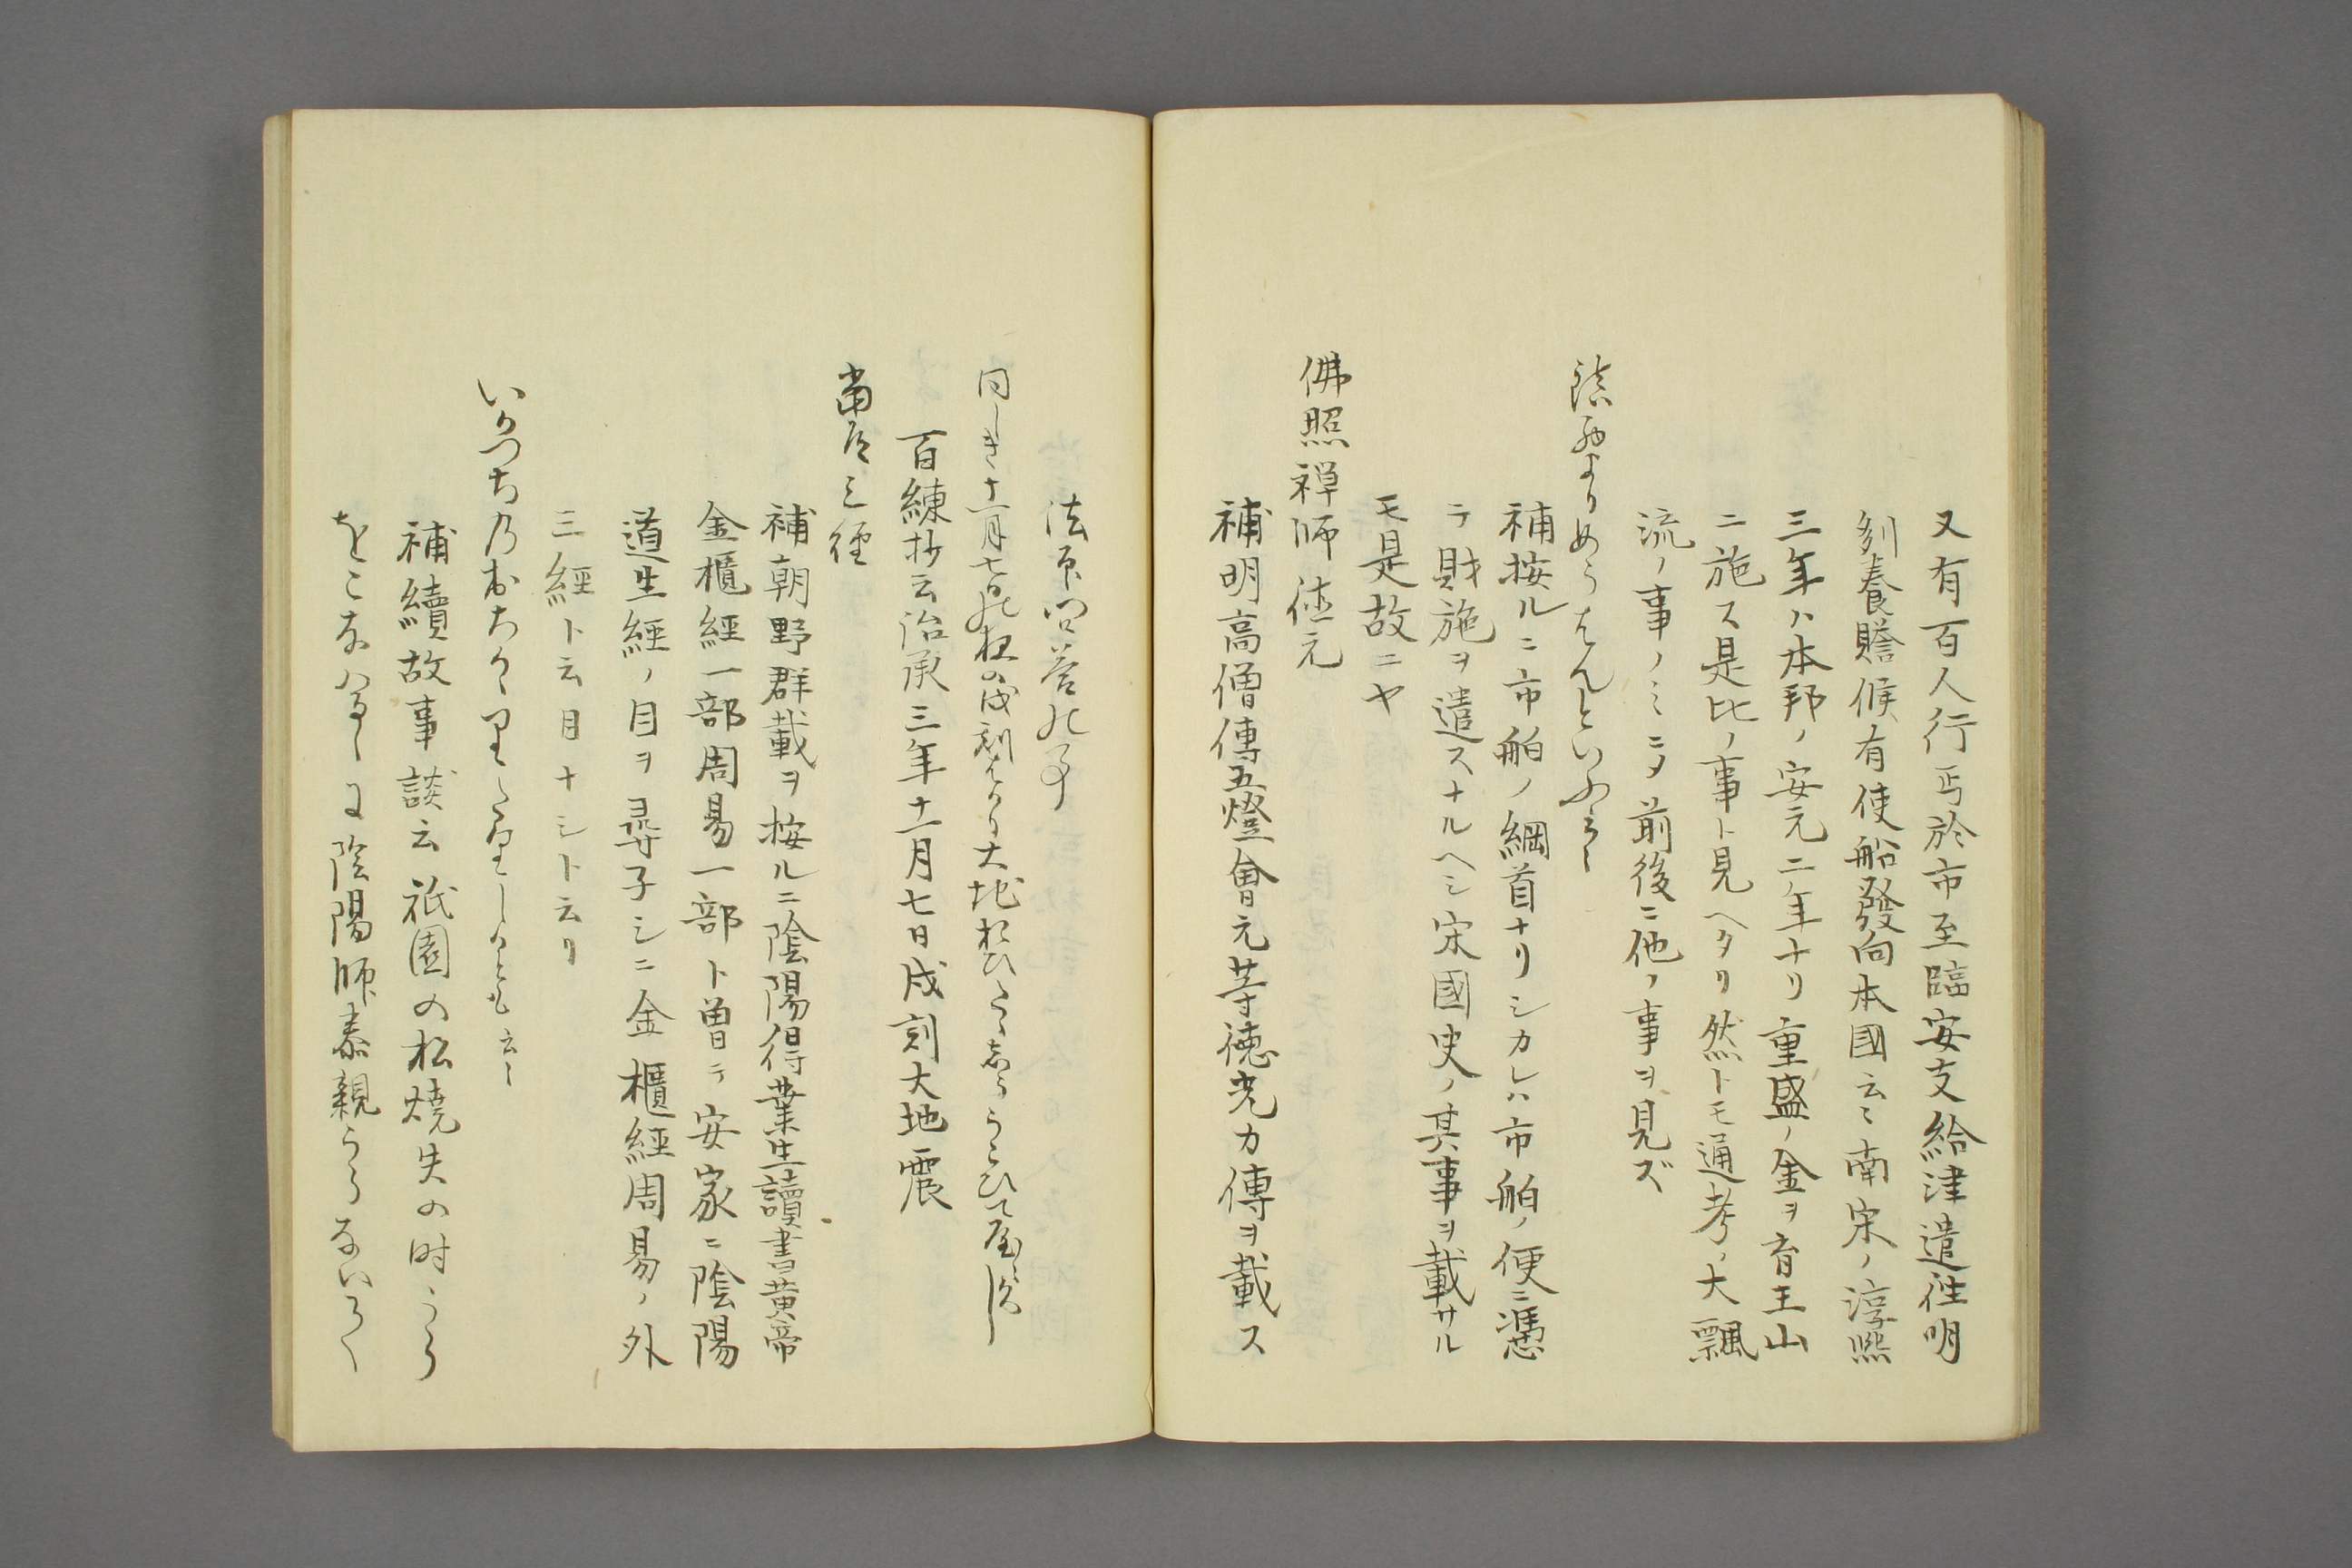 又有百人行丐於市至臨安支給津遣往明
刕養贍候有使船發向本國云〻南宋ノ淳熙
三年ハ本邦ノ安元二年ナリ重盛ノ金ヲ育王山
ニ施ス是比ノ事ト見ヘタリ然トモ通考ノ大飄
流ノ事ノミニメ前後ニ他ノ事ヲ見ズ
よりめうてんといふ
補按ルニ市舶ノ綱首ナリシカレハ市舶ノ便ニ憑
テ財施ヲ遣スナルヘシ宋國史ノ其事ヲ載サル
モ是故ニヤ
佛照禅師徳光
補明高僧傳五燈會元等徳光カ傳ヲ載ス
法印問答の事
同しき十一月七日の夜の戌刻はかり大地おひたゝしううこひて良久し
百練抄云治承三年十一月七日戌刻大地震
當道三經
補朝野群載ヲ按ルニ陰陽得業生讀書黄帝
金櫃經一部周易一部ト曽テ安家ニ陰陽
道生經ノ目ヲ尋子シニ金櫃經周易ノ外
三經ト云目ナシト云リ
いかつちのおちかゝりたりしかとも云〻
補續故事談云祇園の松燒失の時うら
をこなはるゝに陰陽師泰親うらないて